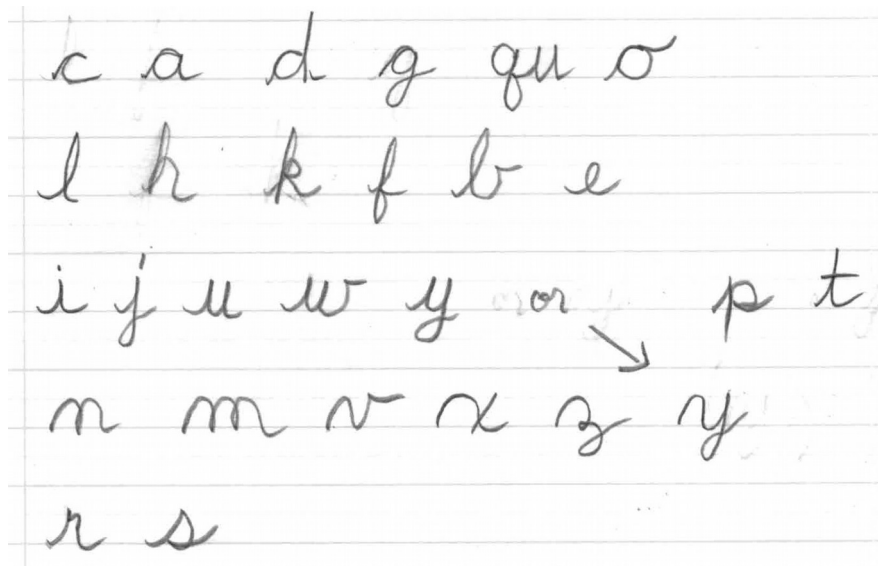 c a d g qu o
l h k f b e
i j u w y or p t
n m v x z y
r s